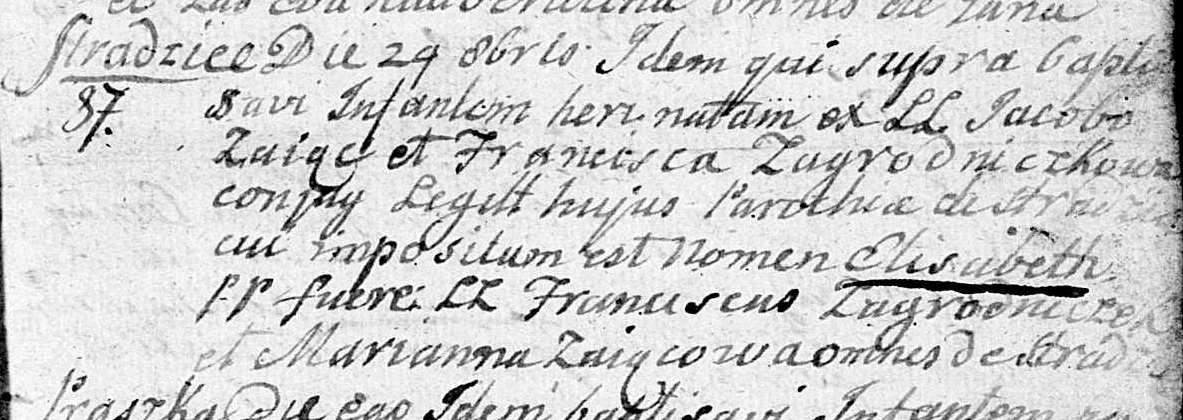 omnes de
Stradziec Die 29 8bris Idem qui supra bapti
87. savi Infantem heri natam ex LL Jacobo
Zaiąc et Francisca Zagrodniczkowna
conjug Legitt hujus Parochiæ de Stradziec
cui impositum est Nomen Elisabeth
PP fuere: LL Franciscus Zagrodniczek
et Marianna Zaiącowa omnes de Stradz
Praszka Die eao Idem baptisavi Infantem